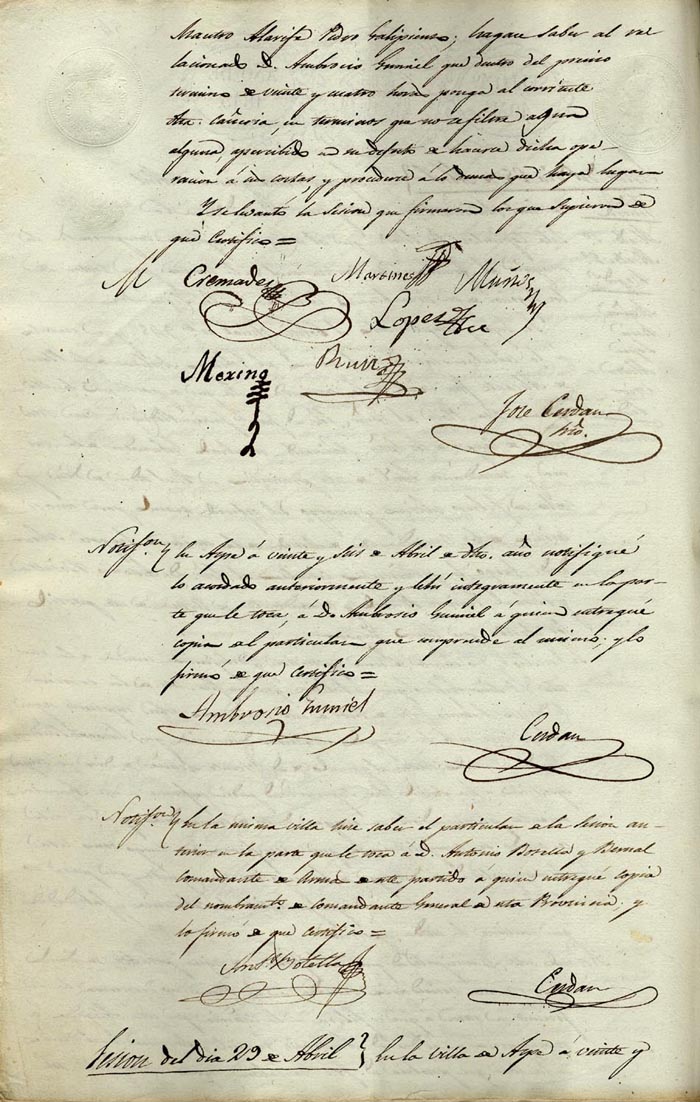 Maestro Alarife Pedro Galipienso; hagan saber al re-
lacionado D. Ambrocio Gumiel que dentro del preciso
termino de veinte y cuatro horas ponga al corriente
dha. Cañeria, en terminos que no se filtre agua
alguna, apercibido en su defecto de hacerse dicha ope-
racion á sus costas y procederé á lo demas que haya lugar
Y se levantó la sesion que firmaron los que supieron de
que Certifico =
M Cremades Martinez Muñoz
Lopez
Merino Ruiz
Jose Cerdan
Srio.
Notifon. En Aspe á veinte y seis de Abril de dho. año notifiqué
lo acordado anteriormente y lehí integramente en la par-
te que le toca, á D. Ambrosio Gumiel á quien entregué
copia del particular que comprende al mismo; y lo
firmó de que certifico =
Ambrosio Gumiel
Cerdan
Notifon. En la misma villa hice saber el particular de la sesion an-
terior en la parte que le toca á D. Antonio Botella y Bernal
Comandante de Armas de este partido a quien entregue copia
del nombramto. de Comandante General de esta Provincia; y
lo firmo de que certifico =
Anto. Botella
Cerdan
Sesion del dia 29 de Abril } En la villa de Aspe á veinte y